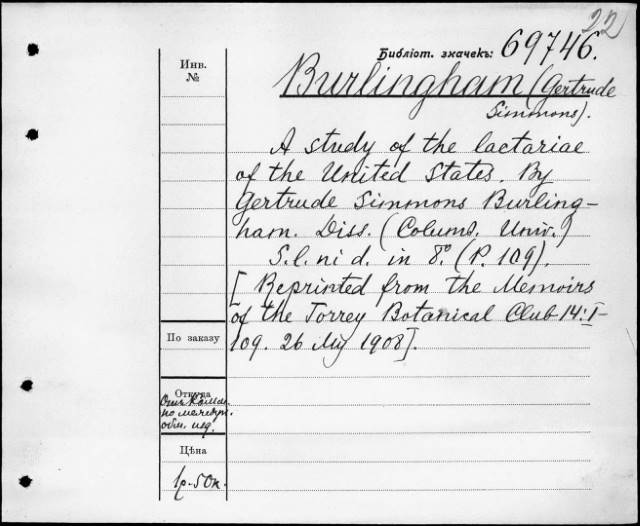 22
Библіот. значекъ: 69746.
Инв.
№
Burlingham (Gertrude
Simmons).
A study of the lactariae
of the United States. By
Gertrude Simmons Burling-
ham. Diss. (Columb. Univ.)
S. l. ni d. in 8º. (P. 109).
[Reprinted from the Memoirs
of the Torrey Botanical Club 14: 1-
109. 26 My 1908].
По заказу
Откуда
по междун.
обм. изд.
Цѣна
1р.-50к.